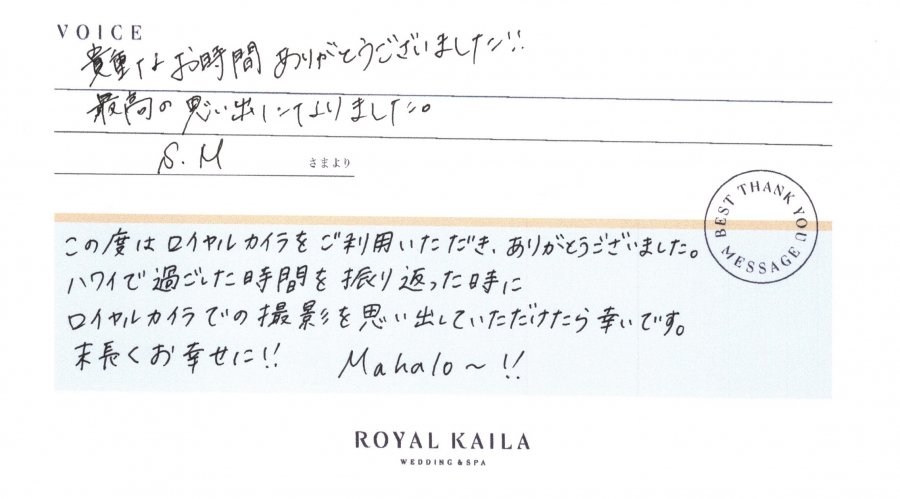 VOICE
貴重なお時間ありがとうございました!!
最高の思い出になりました。
S.M さまより
BEST THANK YOU MESSAGE
この度はロイヤルカイラをご利用いただき、ありがとうございました。
ハワイで過ごした時間を振り返った時に
ロイヤルカイラでの撮影を思い出していただけたら幸いです。
末長くお幸せに!! Mahalo〜!!
ROYAL KAILA
WEDDING & SPA